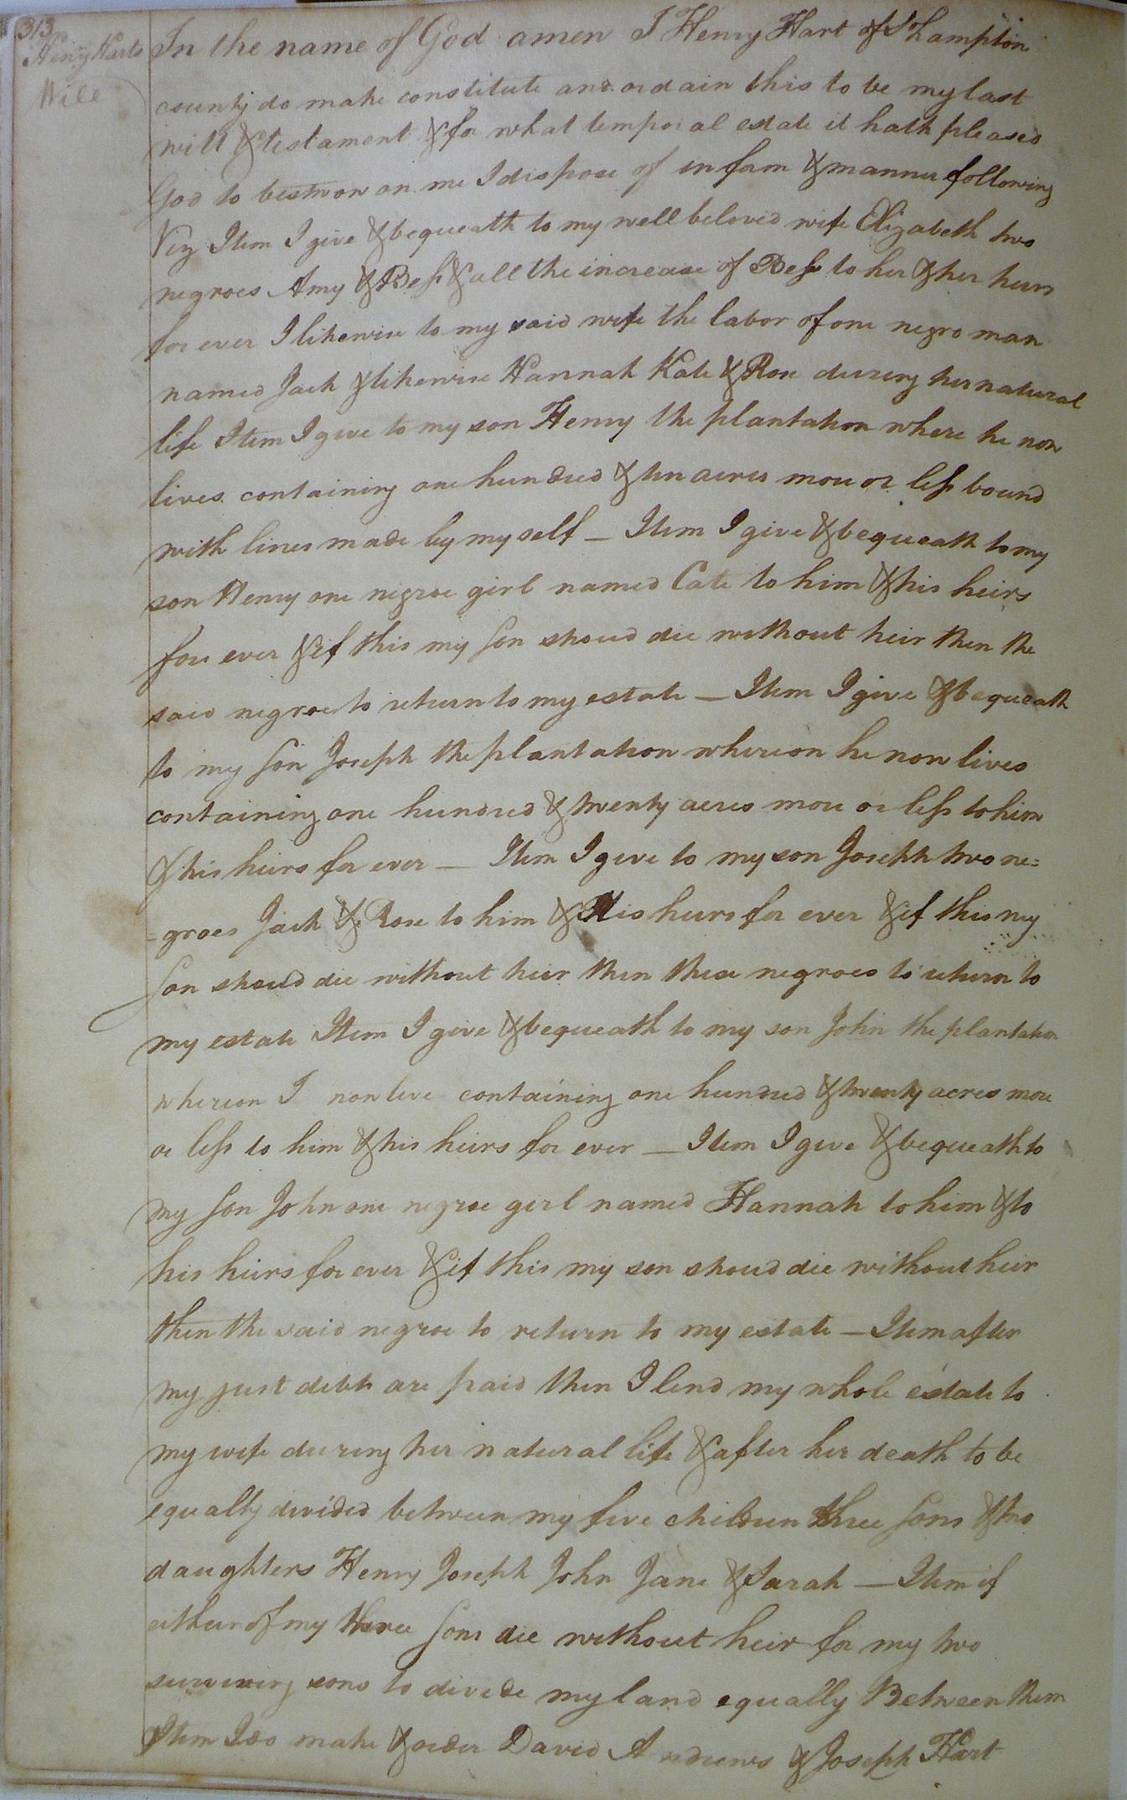 313
Henry Harts
Will
In the name of God amen I Henry Hart of S'hampton
county do make constitute and ordain this to be my last
will & testament & for what temporal estate it hath pleased
God to bestow on me I dispose of in form & manner following
Viz Item I give & bequeath to my well beloved wife Elizabeth two
negroes Amy & Bess & all the increase of Bess to her & her heirs
for ever I likewise to my said wife the labor of one negro man
named Jack & likewise Hannah Kate & Rose during her natural
life Item I give to my son Henry the plantation where he now
lives containing one hundred & ten acres more or less bound
with lines made by my self — Item I give & bequeath to my
son Henry one negroe girl named Cate to him & his heirs
for ever & if this my son shoud die without heir then the
said negroe to return to my estate — Item I give & bequeath
to my son Joseph the plantation whereon he now lives
containing one hundred & twenty acres more or less to him
& his heirs for ever — Item I give to my son Joseph two ne=
=groes Jack & Rose to him & His heirs for ever & if this my
son shoud die without heir then these negroes to return to
my estate Item I give & bequeath to my son John the plantation
whereon I now live containing one hundred & twenty acres more
or less to him & his heirs for ever — Item I give & bequeath to
my son John one negroe girl named Hannah to him & to
his heirs for ever & if this my son shoud die without heir
then the said negroe to return to my estate — Item after
my just debts are paid then I lend my whole estate to
my wife during her natural life & after her death to be
equally divided between my five children three sons & two
daughters Henry Joseph John Jane & Sarah — Item if
either of my three sons die without heir for my two
surviving sons to divide my land equally Between them
Item I do make & order David Andrews & Joseph Hart